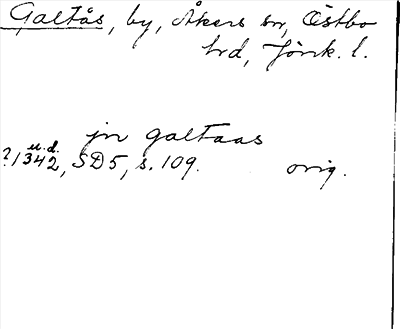 Galtås, by, Åkers sn, Östbo
hrd, Jönk. l.
jn galtaas
u.d.
?1342, SD5, s. 109. orig.